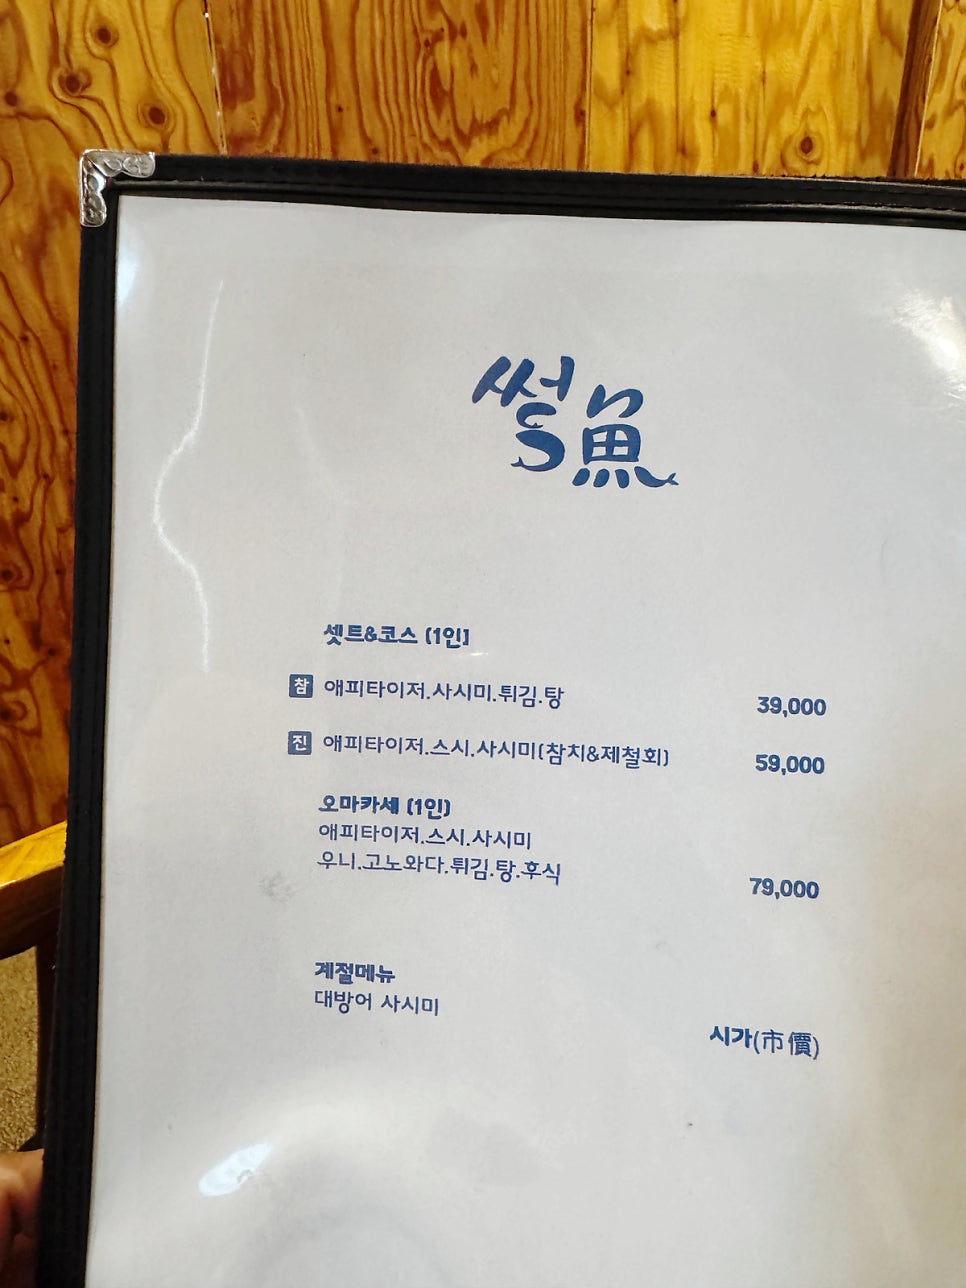 썰魚
셋트&코스 (1인)
참 애피타이저.사시미.튀김.탕 39,000
진 애피타이저.스시.사시미(참치&제철회) 59,000
오마카세 (1인)
애피타이저.스시.사시미
우니.고노와다.튀김.탕.후식 79,000
계절메뉴
대방어 사시미
시가(市價)